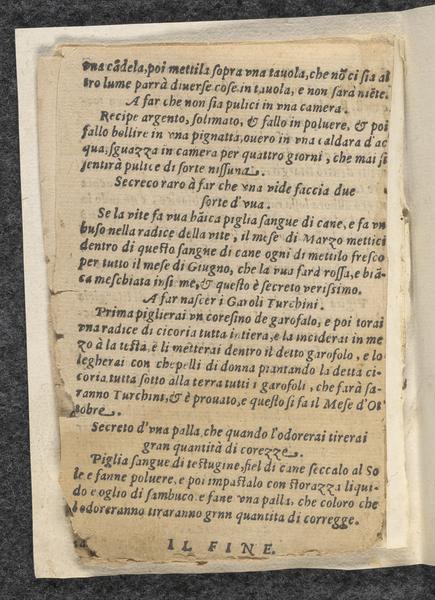 vna cãdela, poi mettila sopra vna tauola, che nõ ci sia al
tro lume parrà diuerse cose in tauola, e non sarà niẽte.
A far che non sia pulici in vna camera.
Recipe argento, solimato, & fallo in poluere, & poi
fallo bollire in vna pignatta, ouero in vna caldara d'ac
qua, sguazza in camera per quattro giorni, che mai si
sentirà pulice di sorte nissuna.
Secreto raro à far che vna vide faccia due
sorte d'vua.
Se la vite fa vua biãca piglia sangue di cane, e fa vn
buso nella radice della vite, il mese di Marzo mettici
dentro di questo sangue di cane ogni dì mettilo fresco
per tutto il mese di Giugno, che la vua sarà rossa, e biã-
ca meschiata insieme, & questo è secreto verissimo.
A far nascer i Garoli Turchini.
Prima piglierai vn coresino de garofalo, e poi torai
vna radice di cicoria tutta intiera, e la inciderai in me
zo à la testa, e li metterai dentro il detto garofolo, e lo
legherai con chepelli di donna piantando la detta ci-
coria tutta sotto alla terra tutti i garofoli, che farà sa-
ranno Turchini, & è prouato, e questo si fa il Mese d'Ot
tobre.
Secreto d'vna palla, che quando l'odorerai tirerai
gran quantità di corezze.
Piglia sangue di testugine, fiel di cane seccalo al So
le e fanne poluere, e poi impastalo con storazza liqui-
do e oglio di sambuco e fane vna palla, che coloro che
lodoreranno tiraranno gran quantita di corregge.
IL FINE.